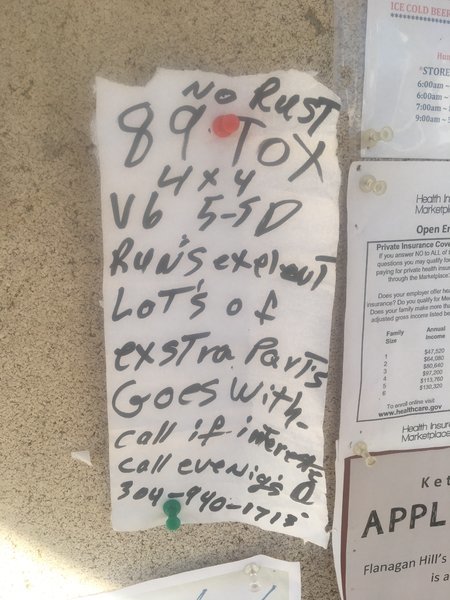 NO RUST
89 TOX
4x4
V6 5-SD
RUN'S explent
LOT'S of
exstra Part's
GOES With-
call if interested
call evenig's
304-940-1713
ICE COLD BEER
"STORE
6:00am ~
6:00am ~
7:00am ~
9:00am ~
Health Ins
Marketplac
Open En
Private Insurance Cove
If you answer NO to ALL of t
questions you may qualify fo
paying for private health insur
through the Marketplace.
Does your employer offer he
insurance? Do you qualify for Me
Does your family make more tha
adjusted gross income listed be
Family Annual
Size Income
1 $47,520
2 $64,080
3 $80,640
4 $97,200
5 $113,760
6 $130,320
To enroll online visit
www.healthcare.gov
Health Insur
Marketplace
Ket
APPL
Flanagan Hill's
is a